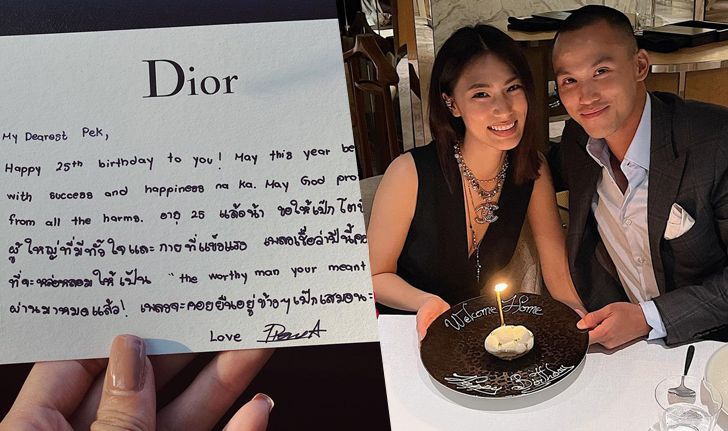 Dior
My Dearest Pek,
Happy 25th birthday to you! May this year be
with success and happiness na ka. May God pro
from all the harms. อายุ 25 แล้วน้า ขอให้เป๊ก โต
ผู้ใหญ่ที่มีทั้งใจและกายที่แข็งแรง เพลงเชื่อว่าปีนี้
ที่จะหล่อหลอมให้เป็น "the worthy man your meant
ผ่านมาหมดแล้ว! เพลงจะคอยยืนอยู่ข้างๆเป๊กเสมอนะ
Love
Welcome Home
Birthday